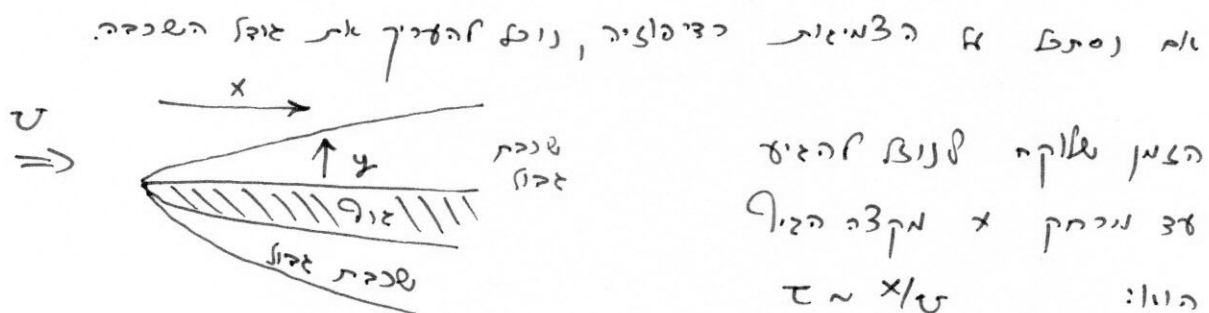 אם נסתכל על הצמיגות כדיפוזיה, נוכל להעריך את גודל השכבה.
x
U
y
שכבת
גבול
גוף
שכבת גבול
הזמן שלוקח לנוזל להגיע
עד מרחק x מקצה הגוף
הוא: τ ~ x/U